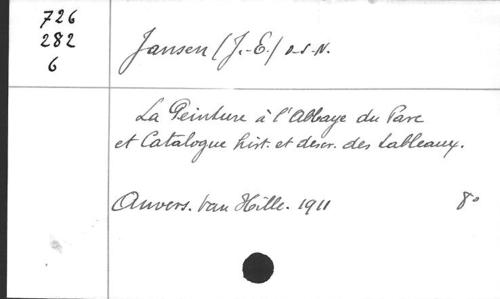 726
282
6
Jansen (J.-E.) o-s-N.
La Peinture à l'Abbaye du Parc
et Catalogue hist. et descr. des tableaux.
Anvers. Van Hille. 1911 8°